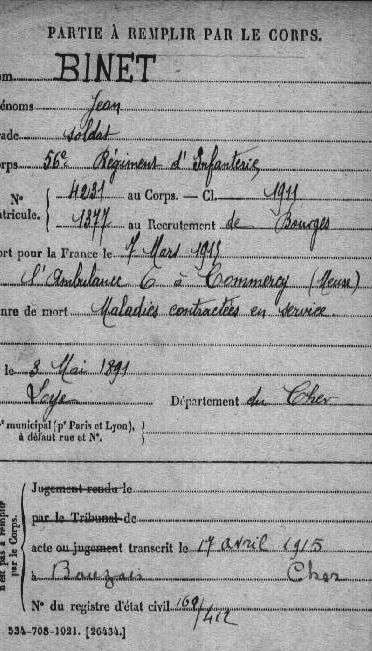 PARTIE À REMPLIR PAR LE CORPS.
om BINET
énoms Jean
ade soldat
orps 56e Régiment d'Infanterie
N° 4231 au Corps. — Cl. 1911
atricule. 1377 au Recrutement de Bourges
ort pour la France le 7 Mars 1915
l'Ambulance 6 à Commercy (Meuse)
nre de mort Maladies contractées en service.
le 3 Mai 1891
Loye Département du Cher
municipal (pr Paris et Lyon),
à défaut rue et N°.
n'est pas à remplir
par le Corps.
Jugement rendu le
par le Tribunal de
acte ou jugement transcrit le 17 avril 1915
à Cher
N° du registre d'état civil 169/412
534-708-1921. [26434.]